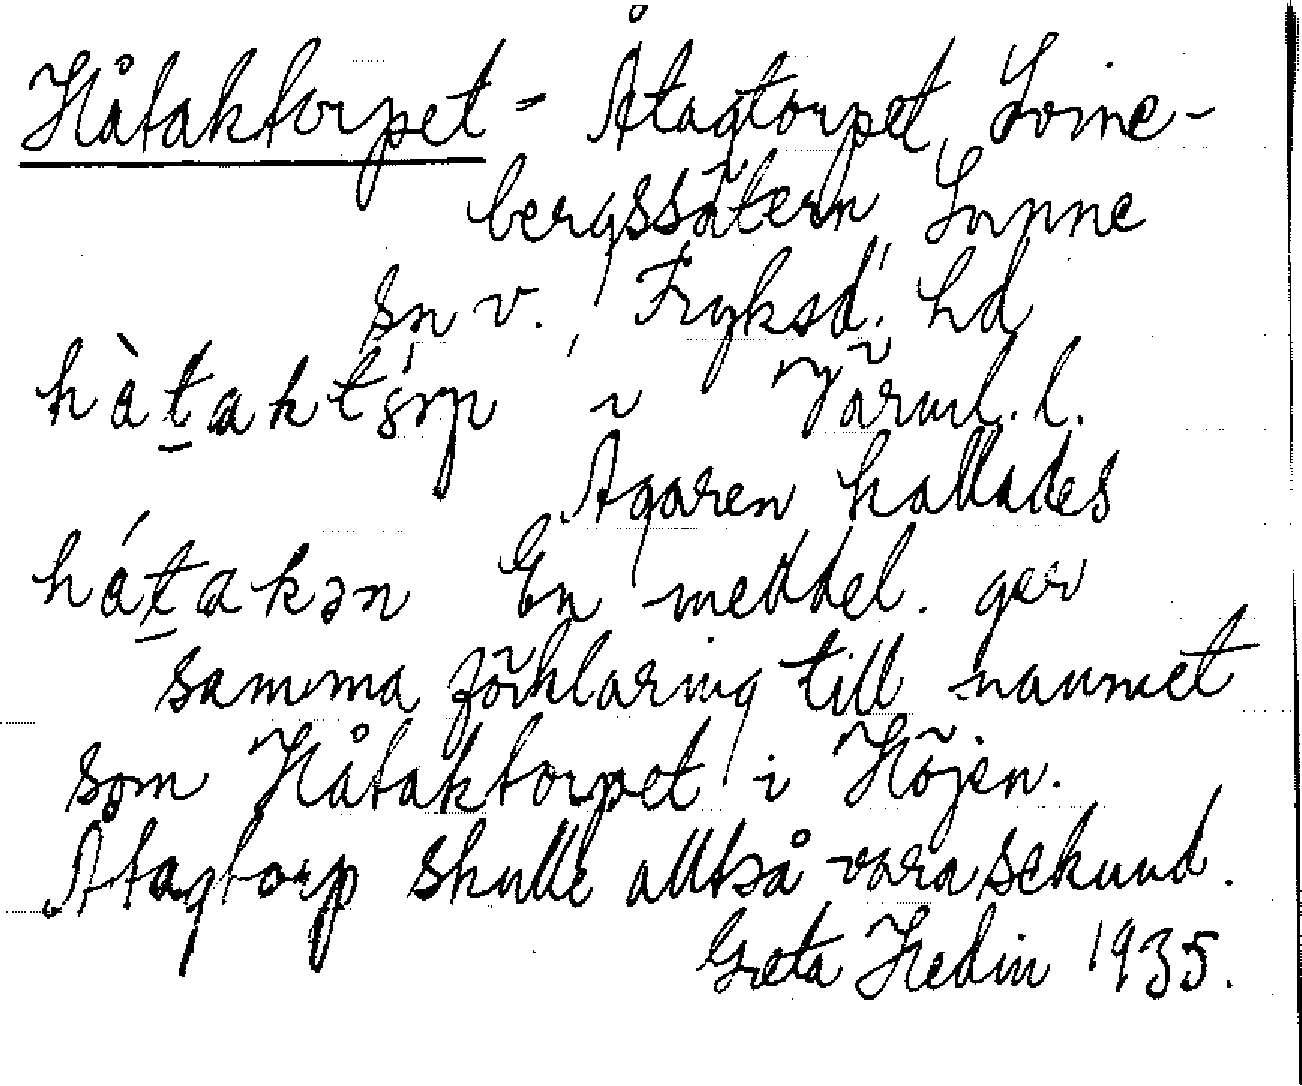 Håtaktorpet = Åtagtorpet, Sme-
bergssätern, Sunne
sn v. Fryksd. hd
hàtaktórp i Värml. l.
Ägaren kallades
hátakən En meddel. ger
samma förklaring till namnet
som Håtaktorpet i Höjen.
Åtagtorp skulle alltså vara sekund.
Greta Hedin 1935.